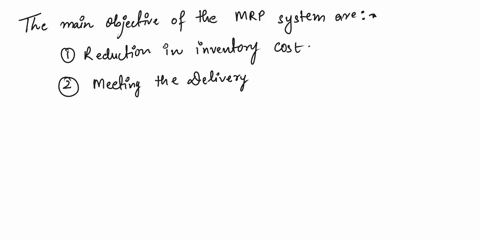 The main objective of the MRP system are:-
① Reduction in inventory cost.
② Meeting the Delivery